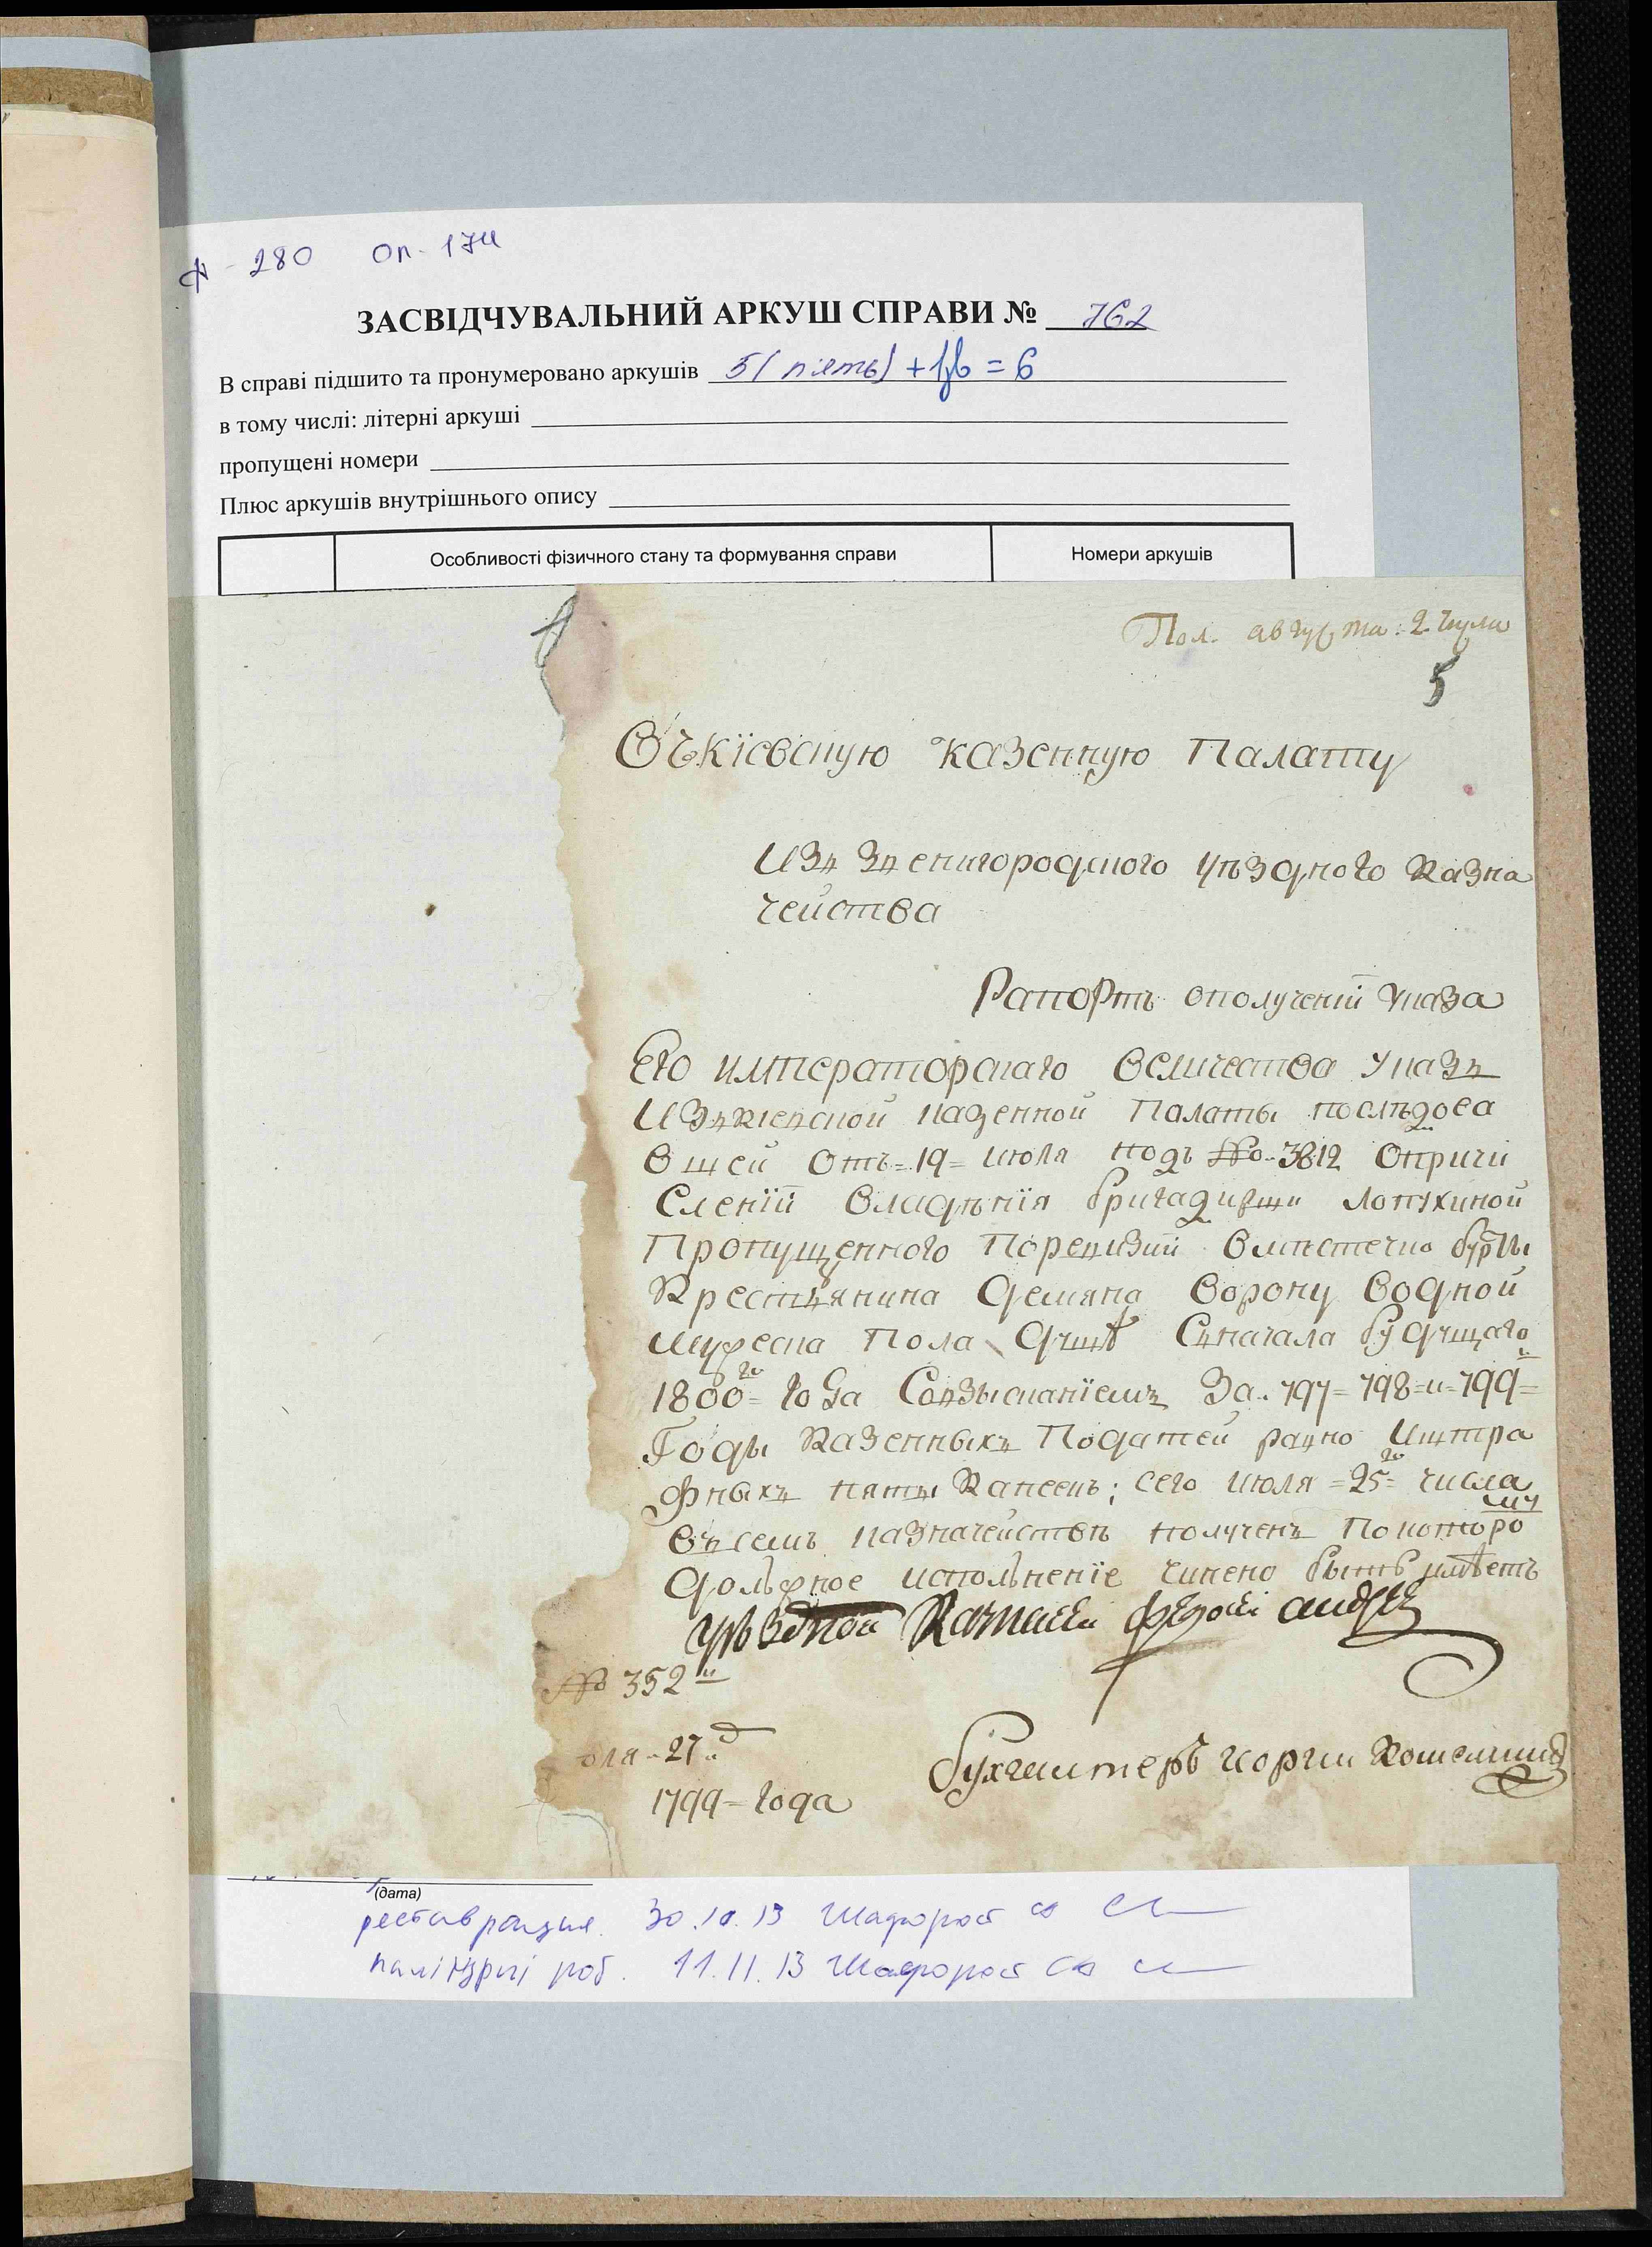 ф-280 оп-174
ЗАСВІДЧУВАЛЬНИЙ АРКУШ СПРАВИ № 762
В справі підшито та пронумеровано аркушів 5 (п'ять) + 1 = 6
в тому числі: літерні аркуші
пропущені номери
Плюс аркушів внутрішнього опису
Особливості фізичного стану та формування справи
Номери аркушів
Пол. августа: 2. числа
5
Въ Кіевскую казенную Палату
Изъ Звенигородского уѣздного Казна
чейства
Рапортъ ополученіи указа
Его императорскаго величества указъ
Изъ Кіевской казенной Палаты послѣдова
вшей отъ = 19 = июля подъ № 3812 Опричи
сленїи владѣнїя бригадирши Лопухиной
Пропущенного Поревизїи вместечке
Крестьянина Демяна Ворону водной
мужеска Пола душѣ Сначала будущаго
1800=го года Совзысканїемъ За 797= 798=и=799=
Годы Казенныхъ Податей равно иштра
фныхъ пяты Капеекъ; сего июля =25=го числа
въ семъ казначействѣ полученъ Покоторо
му
должное исполненїе чинено быть имѣетъ
уѣздной Казначей
№ 352
юля 27 д
Бухгалтеръ
1799= года
(дата)
реставрация. 30.10.13 Шафорост
палітурні роб. 11.11.13 Шафорост